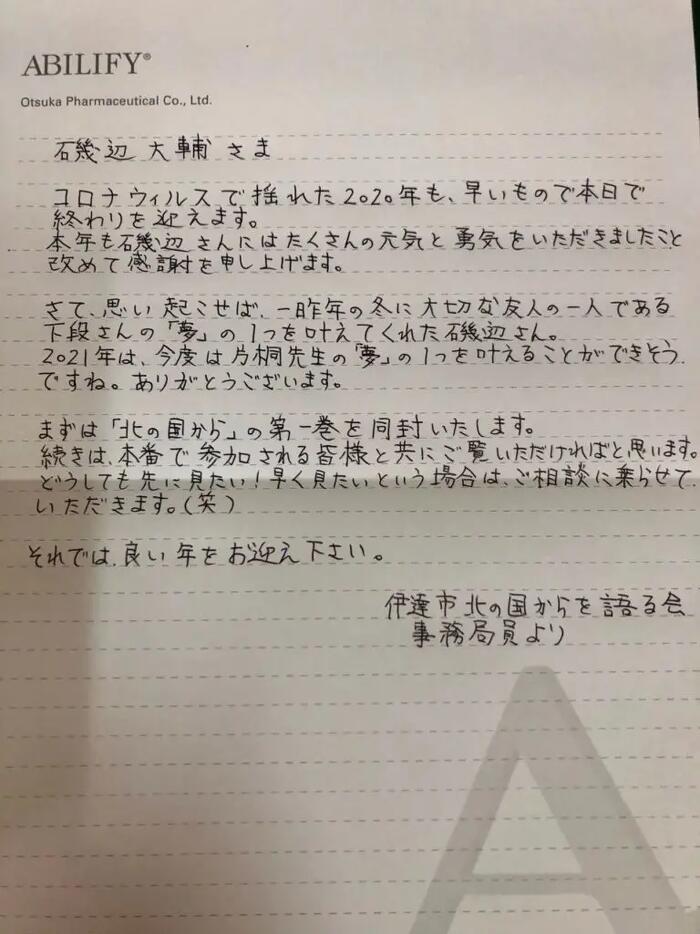 ABILIFY®
Otsuka Pharmaceutical Co., Ltd.
石幾辺 大輔 さま
コロナウィルスで揺れた2020年も、早いもので本日で
終わりを迎えます。
本年も石幾辺さんにはたくさんの元気と勇気をいただきましたこと
改めて感謝を申し上げます。
さて、思い起こせば、一昨年の冬に大切な友人の一人である
下段さんの「夢」の1つを叶えてくれた磯辺さん。
2021年は、今度は片桐先生の「夢」の1つを叶えることができそう
ですね。ありがとうございます。
まずは「北の国から」の第一巻を同封いたします。
続きは、本番で参加される皆様と共にご覧いただければと思います。
どうしても先に見たい!早く見たいという場合は、ご相談に乗らせて
いただきます。(笑)
それでは、良い年をお迎え下さい。
伊達市北の国からを語る会
事務局員より
A